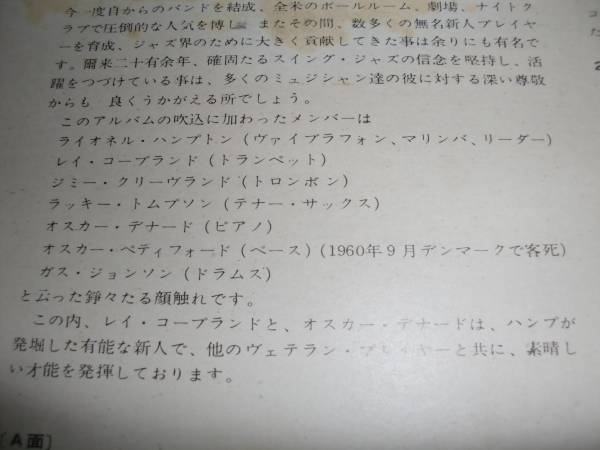 今一度自からのバンドを結成、全米のボールルーム、劇場、ナイトク
ラブで圧倒的な人気を博し、またその間、数多くの無名新人プレイヤ
ーを育成、ジャズ界のために大きく貢献してきた事は余りにも有名で
す。爾来二十有余年、確固たるスイング・ジャズの信念を堅持し、活
躍をつづけている事は、多くのミュジシャン達の彼に対する深い尊敬
からも 良くうかがえる所でしょう。
このアルバムの吹込に加わったメンバーは
ライオネル・ハンプトン（ヴァイブラフォン、マリンバ、リーダー）
レイ・コープランド（トランペット）
ジミー・クリーヴランド（トロンボン）
ラッキー・トムプソン（テナー・サックス）
オスカー・デナード（ピアノ）
オスカー・ペティフォード（ベース）（1960年9月デンマークで客死）
ガス・ジョンソン（ドラムズ）
と云った錚々たる顔触れです。
この内、レイ・コープランドと、オスカー・デナードは、ハンプが
発掘した有能な新人で、他のヴェテラン・プレイヤーと共に、素晴し
い才能を発揮しております。
〔A面〕